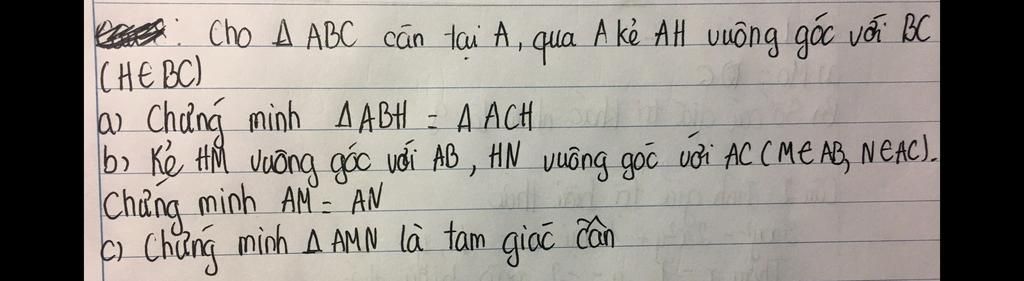 : Cho Δ ABC cân tại A, qua A kẻ AH vuông góc với BC
(H∈BC)
a) Chứng minh ΔABH = ΔACH
b) Kẻ HM vuông góc với AB, HN vuông góc với AC (M∈AB, N∈AC).
Chứng minh AM = AN
c) Chứng minh Δ AMN là tam giác cân